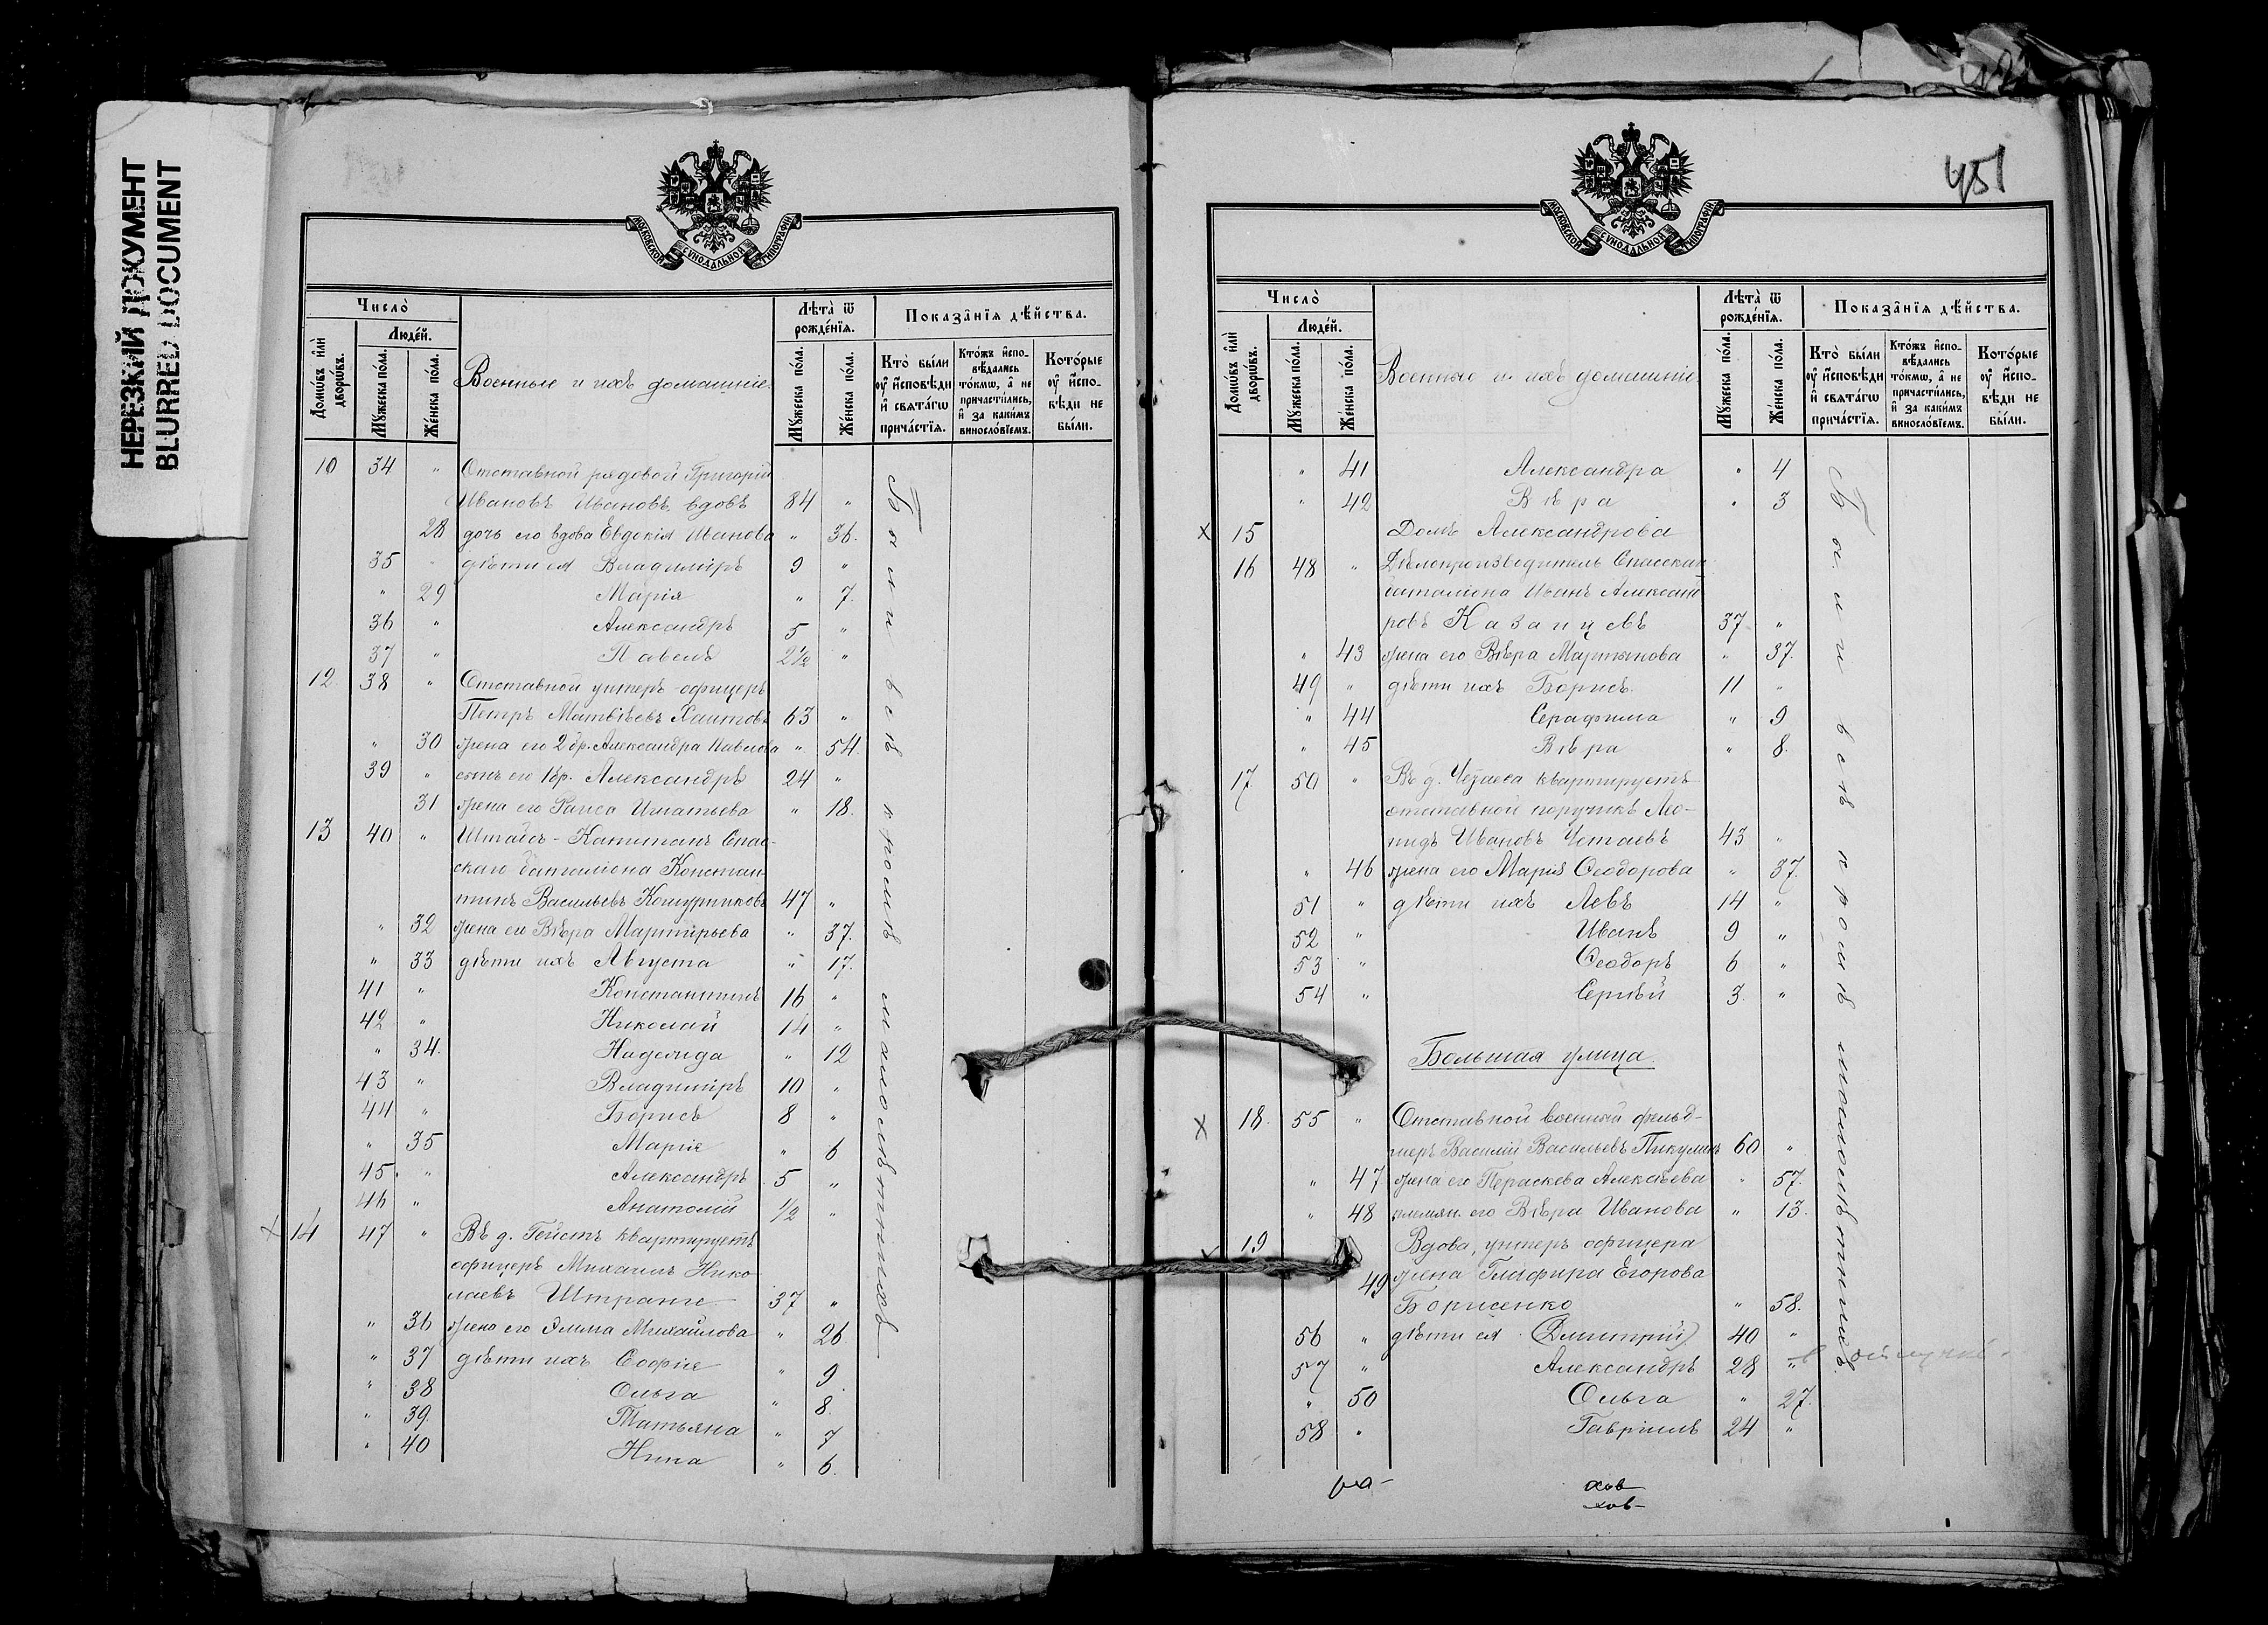 НЕРЕЗКИЙ ДОКУМЕНТ
BLURRED DOCUMENT
МОСКОВСКОЙ СѴНОДАЛЬНОЙ ТИПОГРАФІИ
Число̀
Домѡ́въ и҆лѝ дворѡ́въ.
Люде́й.
Мꙋ́жеска по́ла.
Же́нска по́ла.
Военные и ихъ домашніе.
Лѣта̀ ѿ рожде́нїѧ.
Мꙋ́жеска по́ла.
Же́нска по́ла.
Показа̑нїѧ дѣ́йства.
Кто̀ бы́ли ᲂу҆ и҆́сповѣди и҆ свѧта́гѡ прича́стїѧ.
Кто́жъ и҆спо-вѣ́дались то́кмѡ, а҆ не причасти́лись, и҆ за каки́мъ винослᲂ́вїемъ.
Кото́рые ᲂу҆ и҆́спо-вѣди не бы́ли.
10 34 " Отставной рядовой Григорій
Ивановъ Ивановъ, вдовъ 84 "
28 дочь его вдова Евдокія Иванова " 36.
35 дѣти ея Владиміръ 9 "
" 29 Марія " 7.
36 " Александръ 5 "
37 " Павелъ 2½ "
12. 38 " Отставной унтеръ-офицеръ
Петръ Матвѣевъ Хаитовъ 63 "
" 30 жена его 2 бр. Александра Павлова " 54.
39 " сынъ его 1 бр. Александръ 24 "
31 жена его Раиса Игнатьева " 18.
13 40 " Штабсъ-Капитанъ Спас-
скаго баталіона Констан-
тинъ Васильевъ Кошурниковъ 47 "
" 32 жена его Вѣра Мартирьева " 37.
" 33 дѣти ихъ Августа " 17.
41 " Константинъ 16 "
42 " Николай 14 "
" 34. Надежда " 12
43 " Владиміръ 10 "
44 " Борисъ 8 "
" 35 Марія " 6
45. " Александръ 5 "
46 " Анатолій ½ "
х 14 47 " Въ д. Гейстъ квартируетъ
офицеръ Михаилъ Нико
лаевъ Штранге 37 "
" 36 жена его Эмма Михайлова " 26
" 37 дѣти ихъ Софія " 9
" 38 Ольга " 8
" 39. Татьяна " 7
" 40 Нина " 6.
Были всѣ кромѣ малолѣтнихъ
451
МОСКОВСКОЙ СѴНОДАЛЬНОЙ ТИПОГРАФІИ
Число̀
Домѡ́въ и҆лѝ дворѡ́въ.
Люде́й.
Мꙋ́жеска по́ла.
Же́нска по́ла.
Военные и ихъ домашніе.
Лѣта̀ ѿ рожде́нїѧ.
Мꙋ́жеска по́ла.
Же́нска по́ла.
Показа̑нїѧ дѣ́йства.
Кто̀ бы́ли ᲂу҆ и҆́сповѣди и҆ свѧта́гѡ прича́стїѧ.
Кто́жъ и҆спо-вѣ́дались то́кмѡ, а҆ не причасти́лись, и҆ за каки́мъ винослᲂ́вїемъ.
Кото́рые ᲂу҆ и҆́спо-вѣди не бы́ли.
" 41 Александра " 4
" 42 Вѣра " 3
х 15 Домъ Александрова
16 48 " Дѣлопроизводитель Спасскаго
баталіона Иванъ Александ
ровъ Казанцевъ 37 "
" 43 жена его Вѣра Мартынова " 37.
49 " дѣти ихъ Борисъ 11 "
" 44 Серафима " 9
" 45 Вѣра " 8.
17 50 " Въ д. квартируетъ
отставной поручикъ Лео-
нидъ Ивановъ Четаевъ 43 "
" 46 жена его Марія Ѳеодорова " 37.
51 " дѣти ихъ Левъ 14 "
52 " Иванъ 9 "
53 " Ѳеодоръ 6 "
54 " Сергѣй 3. "
Большая улица.
х 18. 55 " Отставной военный фельд-
шеръ Василій Васильевъ Пикулинъ 60 "
" 47 жена его Параскева Алексѣева " 57.
" 48 племян. его Вѣра Иванова " 13.
19 Вдова, унтеръ офицера
49 жена Глафира Егорова
Борисенко " 58.
56 " дѣти ея (Димитрій) 40 "
57 " Александръ 28 "
" 50 Ольга " 27.
58 " Гавріилъ 24 "
Были всѣ кромѣ малолѣтнихъ.